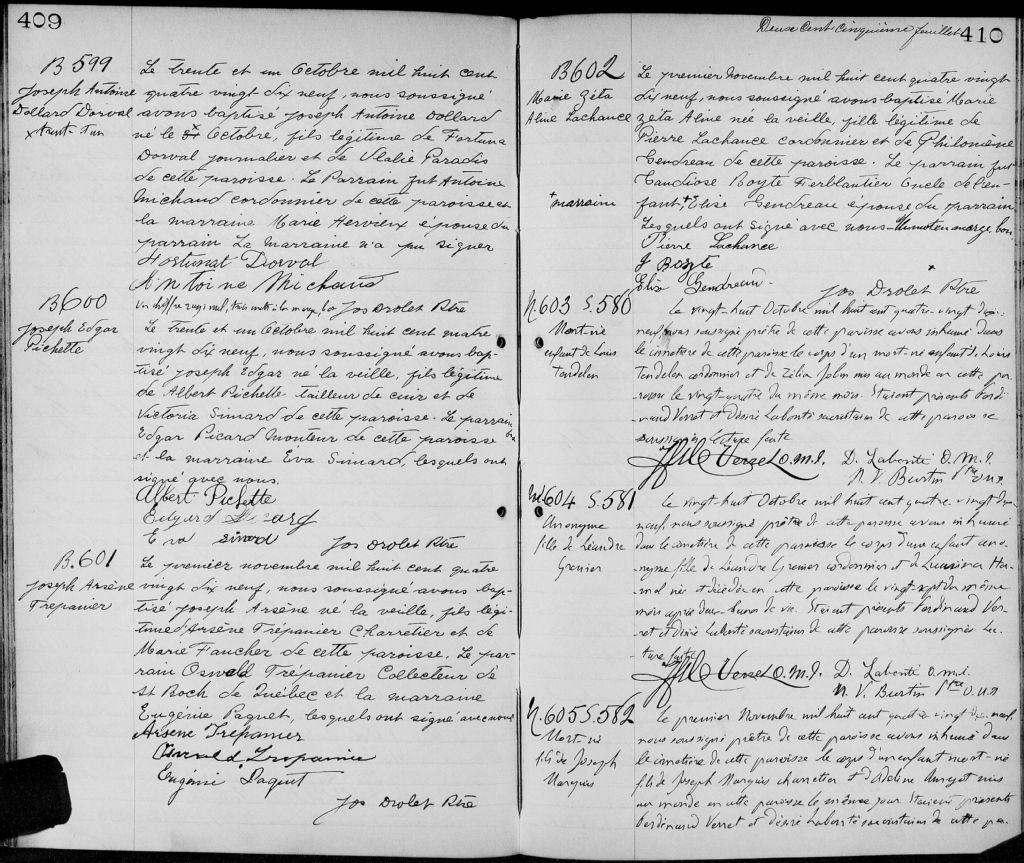 409
B 599
Joseph Antoine
Dollard Dorval
Le trente et un Octobre mil huit cent
quatre vingt dix neuf, nous soussigné
avons baptisé Joseph Antoine Dollard
né le Octobre, fils légitime de Fortuna
Dorval journalier et de Paradis
de cette paroisse. Le Parrain fut Antoine
Michaud cordonnier de cette paroisse et
la marraine Marie Hervieux épouse du
parrain La marraine n'a pu signer
Fortunat Dorval
Antoine Michaud
Jos Drolet Ptre
B 600
Joseph Edgar
Pichette
Le trente et un Octobre mil huit cent quatre
vingt dix neuf, nous soussigné avons bap-
tisé Joseph Edgar né la veille, fils légitime
de Albert Pichette tailleur de cuir et de
Victoria Simard de cette paroisse. Le parrain
Edgar Picard monteur de cette paroisse
et la marraine Eva Simard, lesquels ont
signé avec nous.
Albert Pichette
Edgard
Eva Simard
Jos Drolet Ptre
B. 601
Joseph Arsène
Trepanier
Le premier novembre mil huit cent quatre
vingt dix neuf, nous soussigné avons bap-
tisé Joseph Arsène né la veille, fils légi-
time d'Arsène Trépanier Charretier et de
Marie Faucher de cette paroisse. Le par-
rain Oswald Trépanier Collecteur de
St Roch de Québec et la marraine
Eugénie Paquet, lesquels ont signé avec nous
Arsene Trepanier
Oswald Trepanier
Eugénie Paquet
Jos Drolet Ptre
Deux Cent Cinquième feuillet
410
B 602
Marie Zéta
Aline Lachance
+ marraine
Le premier Novembre mil huit cent quatre vingt
dix neuf, nous soussigné avons baptisé Marie
Zeta Aline née la veille, fille légitime de
Pierre Lachance cordonnier et de Philomène
Gendreau de cette paroisse. Le parrain fut
Gaudiose Boyte Ferblantier Oncle de l'en-
fant, + Elise Gendreau épouse du parrain
Lesquels ont signé avec nous - Un mot en marge, bon.
Pierre Lachance
G Boyte
Elise Gendreau.
Jos Drolet Ptre
N. 603 S. 580
Mort-né
enfant de Louis
Tondelen
Le vingt-huit Octobre mil huit cent quatre-vingt dix-
neuf, nous soussigné prêtre de cette paroisse avons inhumé dans
le cimetière de cette paroisse le corps d'un mort-né enfant de Louis
Tondelen cordonnier et de Zélia Jolin mis au monde en cette pa-
roisse le vingt-quatre du même mois. Etaient présents Ferdi-
nand Verret et Désiré Labonté sacristains de cette paroisse
soussignés lecture faite
Verret O.M.I. D. Labonté O.M.I.
N. V. Burtin Ptre O.M.I.
604 S. 581
Anonyme
fille de Léandre
Grenier
Le vingt-huit Octobre mil huit cent quatre vingt dix-
neuf, nous soussigné prêtre de cette paroisse avons inhumé
dans le cimetière de cette paroisse le corps d'une enfant ano-
nyme fille de Léandre Grenier cordonnier et de
et décédée en cette paroisse le vingt-sept du même
mois après deux heures de vie. Etaient présents Ferdinand Ver-
ret et Désiré Labonté sacristains de cette paroisse soussignés lec-
ture faite
Verret O.M.I. D. Labonté O.M.I.
N. V. Burtin Ptre O.M.I.
N. 605 S. 582
Mort-né
fils de Joseph
Marquis
Le premier Novembre mil huit cent quatre-vingt dix-neuf,
nous soussigné prêtre de cette paroisse avons inhumé dans
le cimetière de cette paroisse le corps d'un enfant mort-né
fils de Joseph Marquis charretier et d'Adeline mis
au monde en cette paroisse le même jour Etaient présents
Ferdinand Verret et Désiré Labonté sacristains de cette pa-